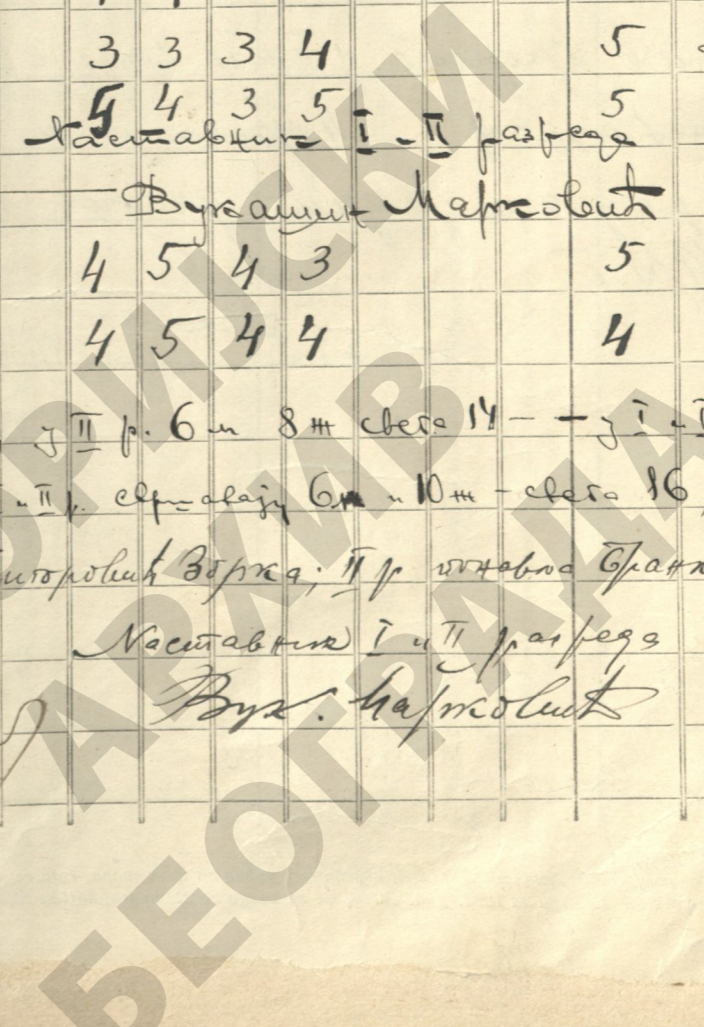 3 3 3 4 5
5 4 3 5 5
Наставник I и II разреда
Вукашин Марковић
4 5 4 3 5
4 5 4 4 4
у II р. 6 м 8 ж свега 14 — — у I и
и II р. свршавају 6 м и 10 ж — свега 16
Зорка; II р
Наставник I и II разреда
Вук. Марковић
ОРИЈСКИ
АРХИВ
БЕОГРАДА